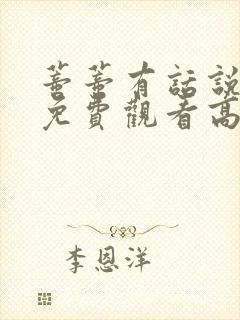 蓍蓍有話說
免費觀看高
李恩洋